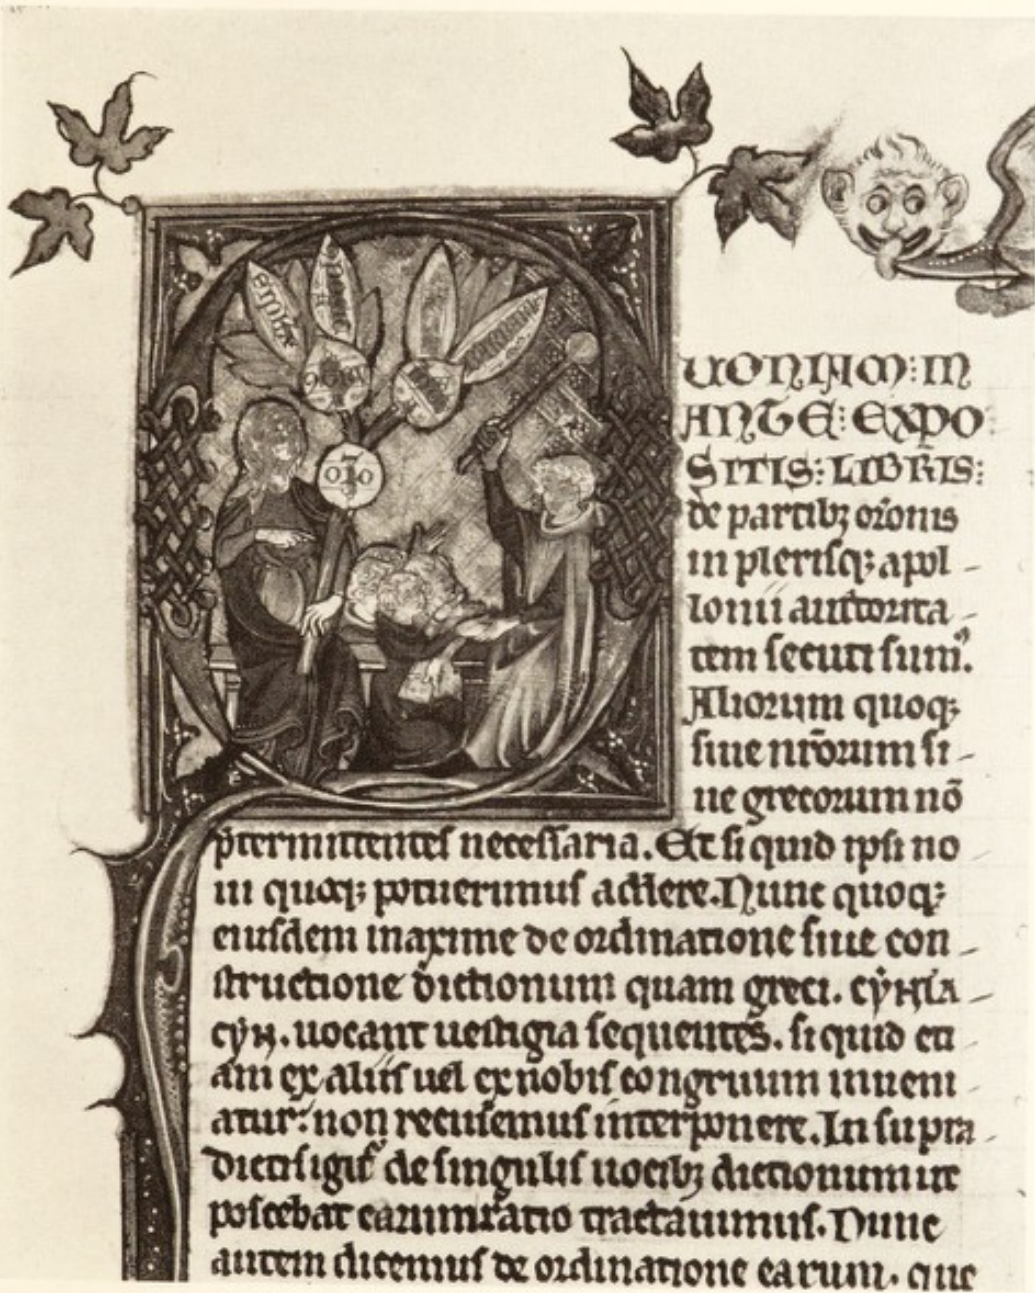 oro
UONIAM: IN
ANTE: EXPO
SITIS: LIBRIS:
de partibꝫ or̄onis
in plerisqꝫ apol
lonii auctorita
tem secuti sumꝰ.
Aliorum quoqꝫ
siue nr̄orum si
ue grecorum nō
p̄termittentes necessaria. Et si quid ipsi no
ui quoqꝫ potuerimus addere. Nunc quoqꝫ
eiusdem maxime de ordinatione siue con
structione dictionum quam greci. cẏnta
cẏn. uocant uestigia sequentes. si quid eti
am ex aliis uel ex nobis congruum inueni
atur: non recusemus interponere. In supra
dictis igit̄ de singulis uocibꝫ dictionum ut
poscebat earum ratio tractauimus. Nunc
autem dicemus de ordinatione earum. que